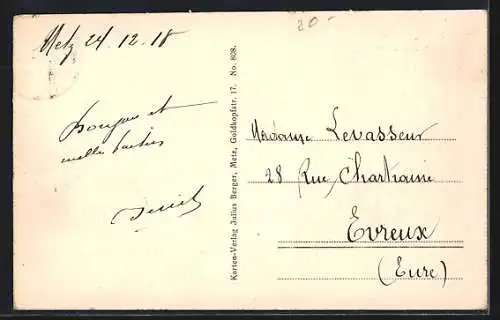 20-
Metz 24.12.18
Bonjour et
mille
Karten-Verlag Julius Berger, Metz, Goldkopfstr. 17. No. 808.
Madame Levasseur
28 Rue Chartraine
Evreux
(Eure)